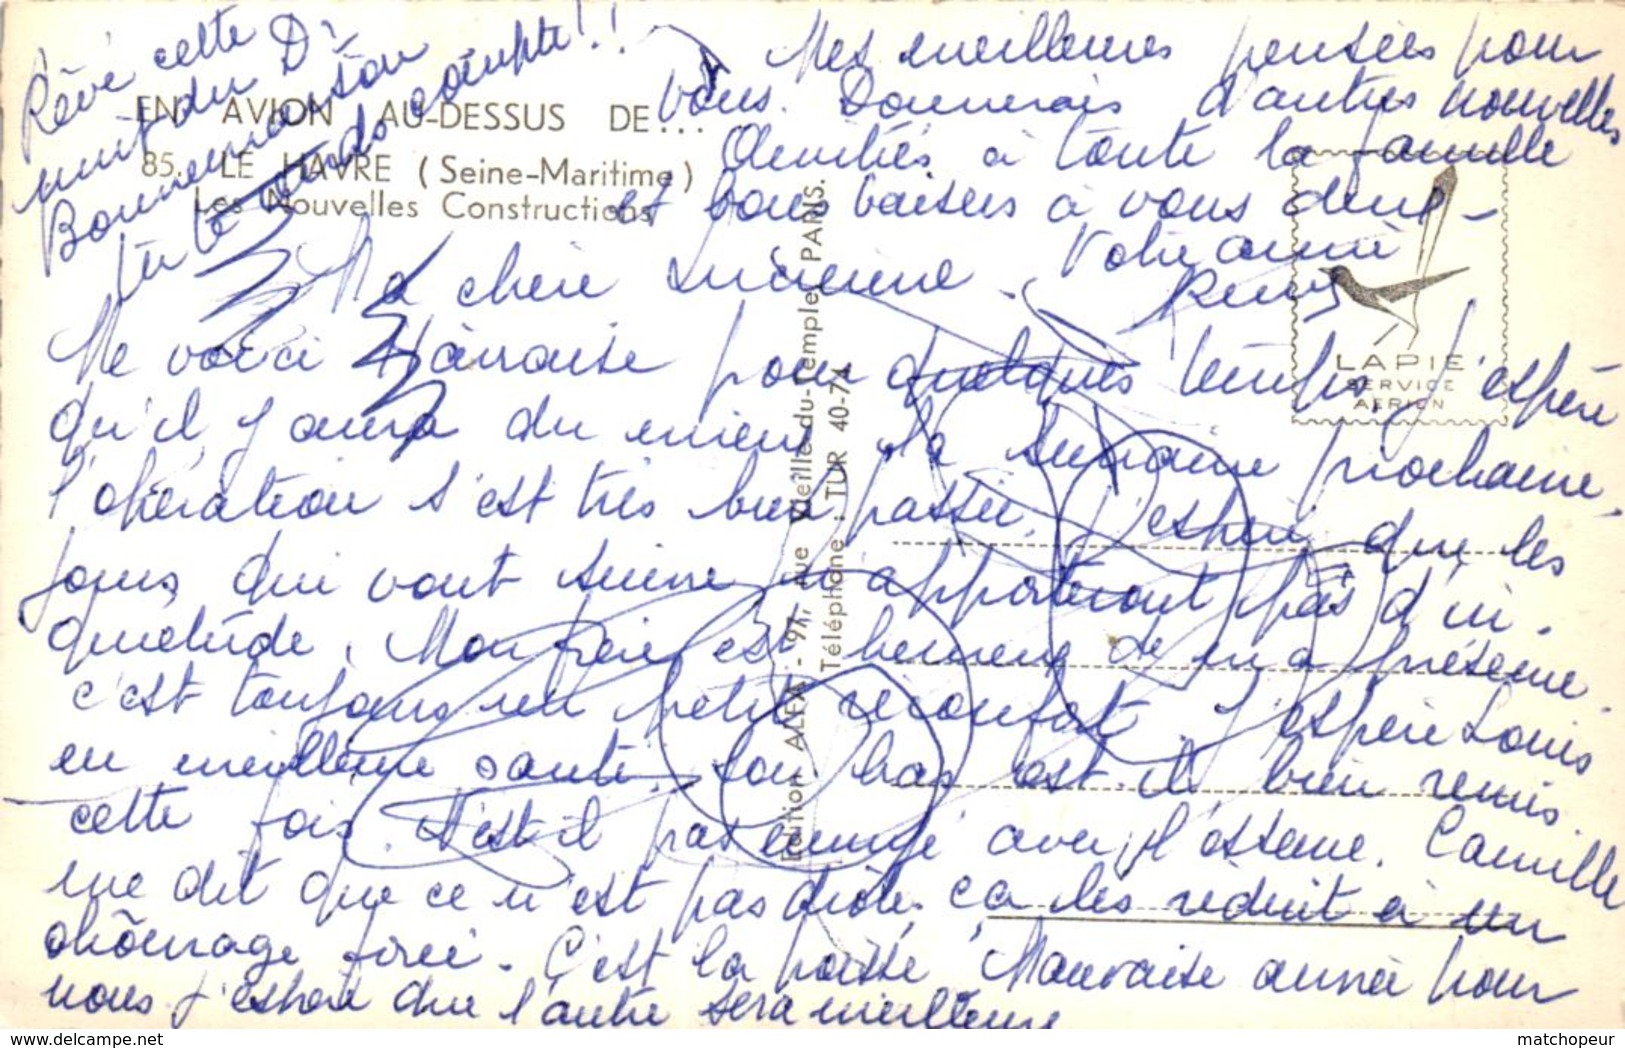 EN AVION AU-DESSUS DE...
85. LE HAVRE (Seine-Maritime)
Les Nouvelles Constructions
Edition ALFA - 97, rue Vieille-du-Temple, PARIS.
Téléphone : TUR 40-74
LAPIE
SERVICE
AERIEN
Ma chère Lucienne.
Me voici Havraise pour quelques temps. J'espère
qu'il y aura du mieux la semaine prochaine.
l'opération s'est très bien passée. J'espère que les
jours qui vont suivre n'apporteront pas d'in-
quiétude. Mon frère est heureux de ma présence.
c'est toujours un petit réconfort. J'espère Louis
en meilleure santé. Son bras est-il bien remis
cette fois. N'est-il pas ennuyé avec Camille
me dit que ce n'est pas drôle. ça les réduit à un
chômage forcé. C'est la poisse. Mauvaise année pour
nous j'espère que l'autre sera meilleure
Mes meilleures pensées pour
vous. Donnerais d'autres nouvelles
Amitiés à toute la famille
et bons baisers à vous deux -
Votre amie
Rêvé cette
nuit du Dr
compte!!
matchopeur